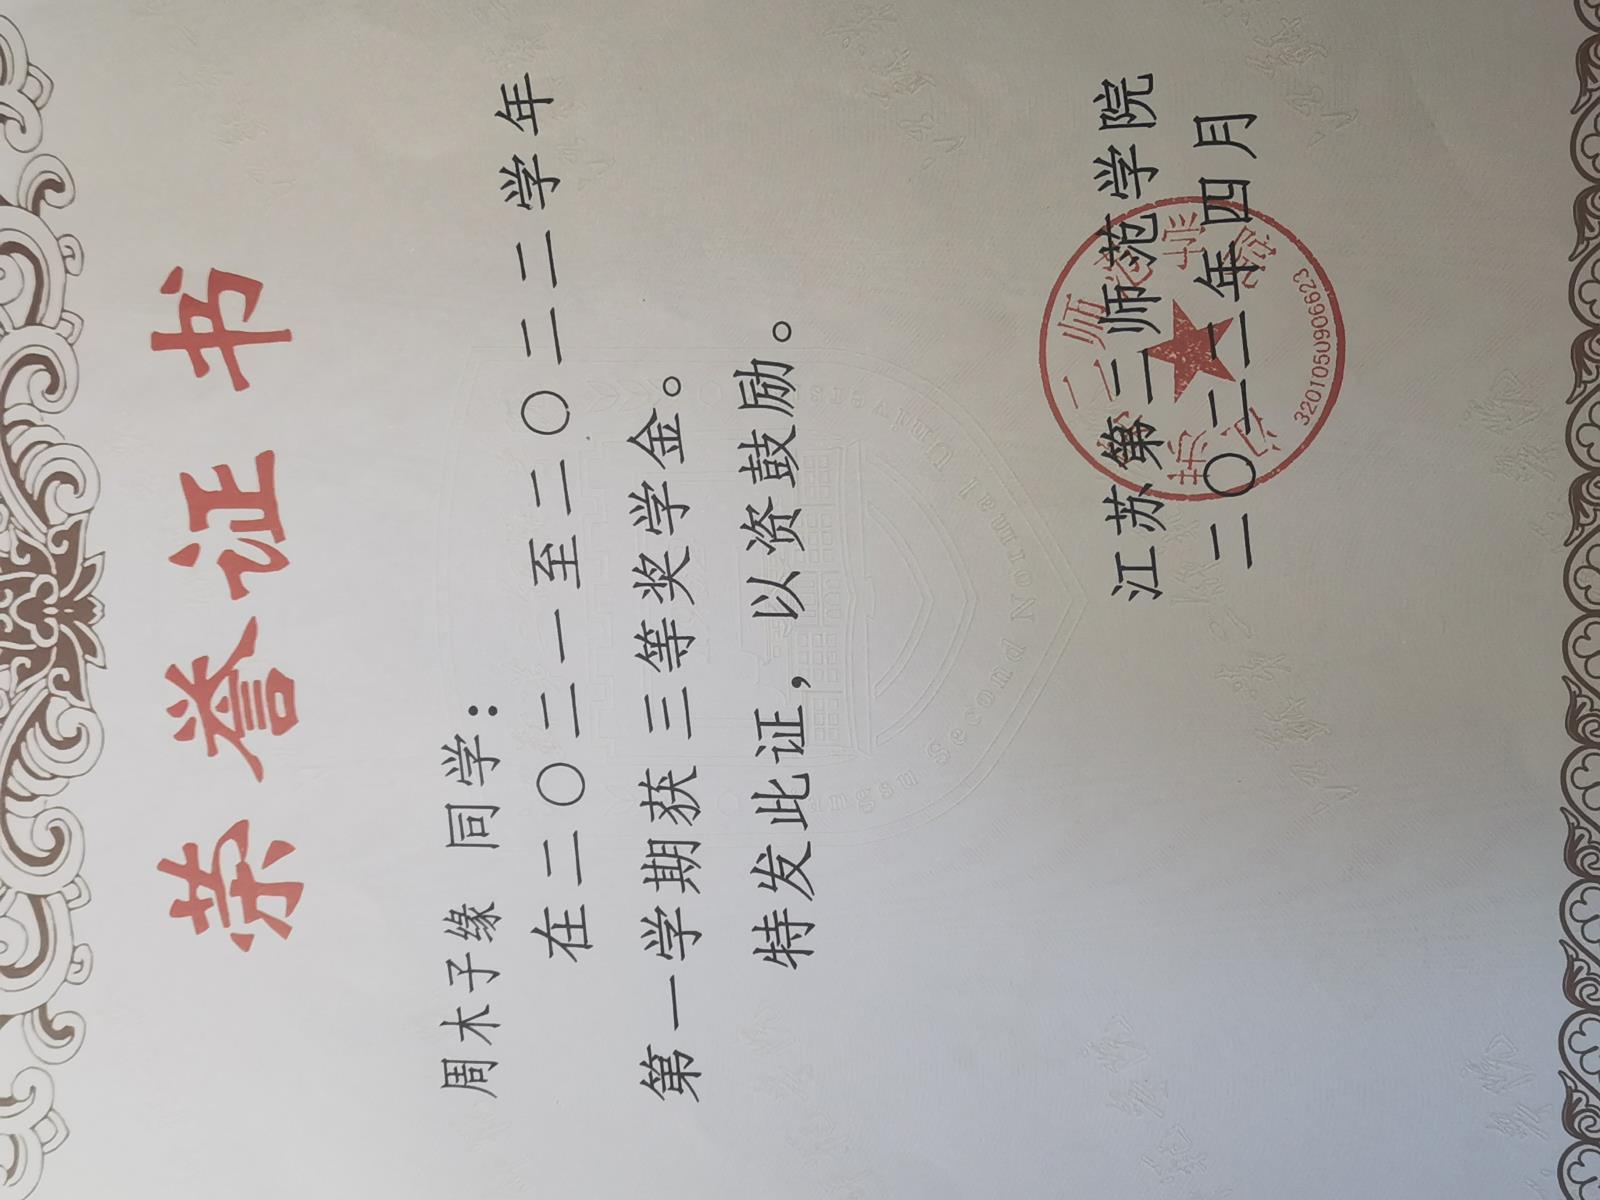 荣誉证书
周木子缘 同学：
在二〇二一至二〇二二学年
第一学期获 三等奖学金。
特发此证，以资鼓励。
江苏第二师范学院
二〇二二年四月
江苏第二师范学院
3201050906623
Jiangsu Second Normal University